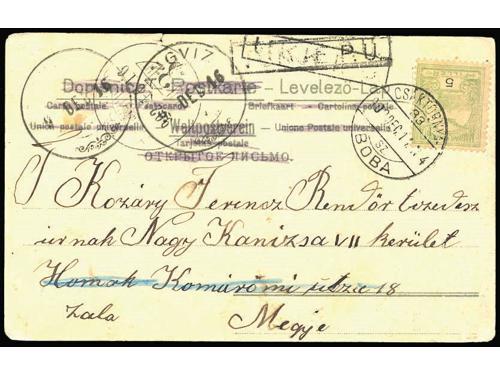 Dopisnice — Postkarte — Levelező-Lap
Carte postale Postcard Briefkaart Cartolina postale
Union postale universelle Weltpostverein Unione Postale Universelle
Tarjeta postale
ОТКРЫТОЕ ПИСЬМО.
CSÁKTORNYA
33
SZ.
BOBA
5
Kozáry Terencz Rendőr
úrnak Nagy Kanizsa VII kerület
Homok Komáromi útza 18
Zala Megye